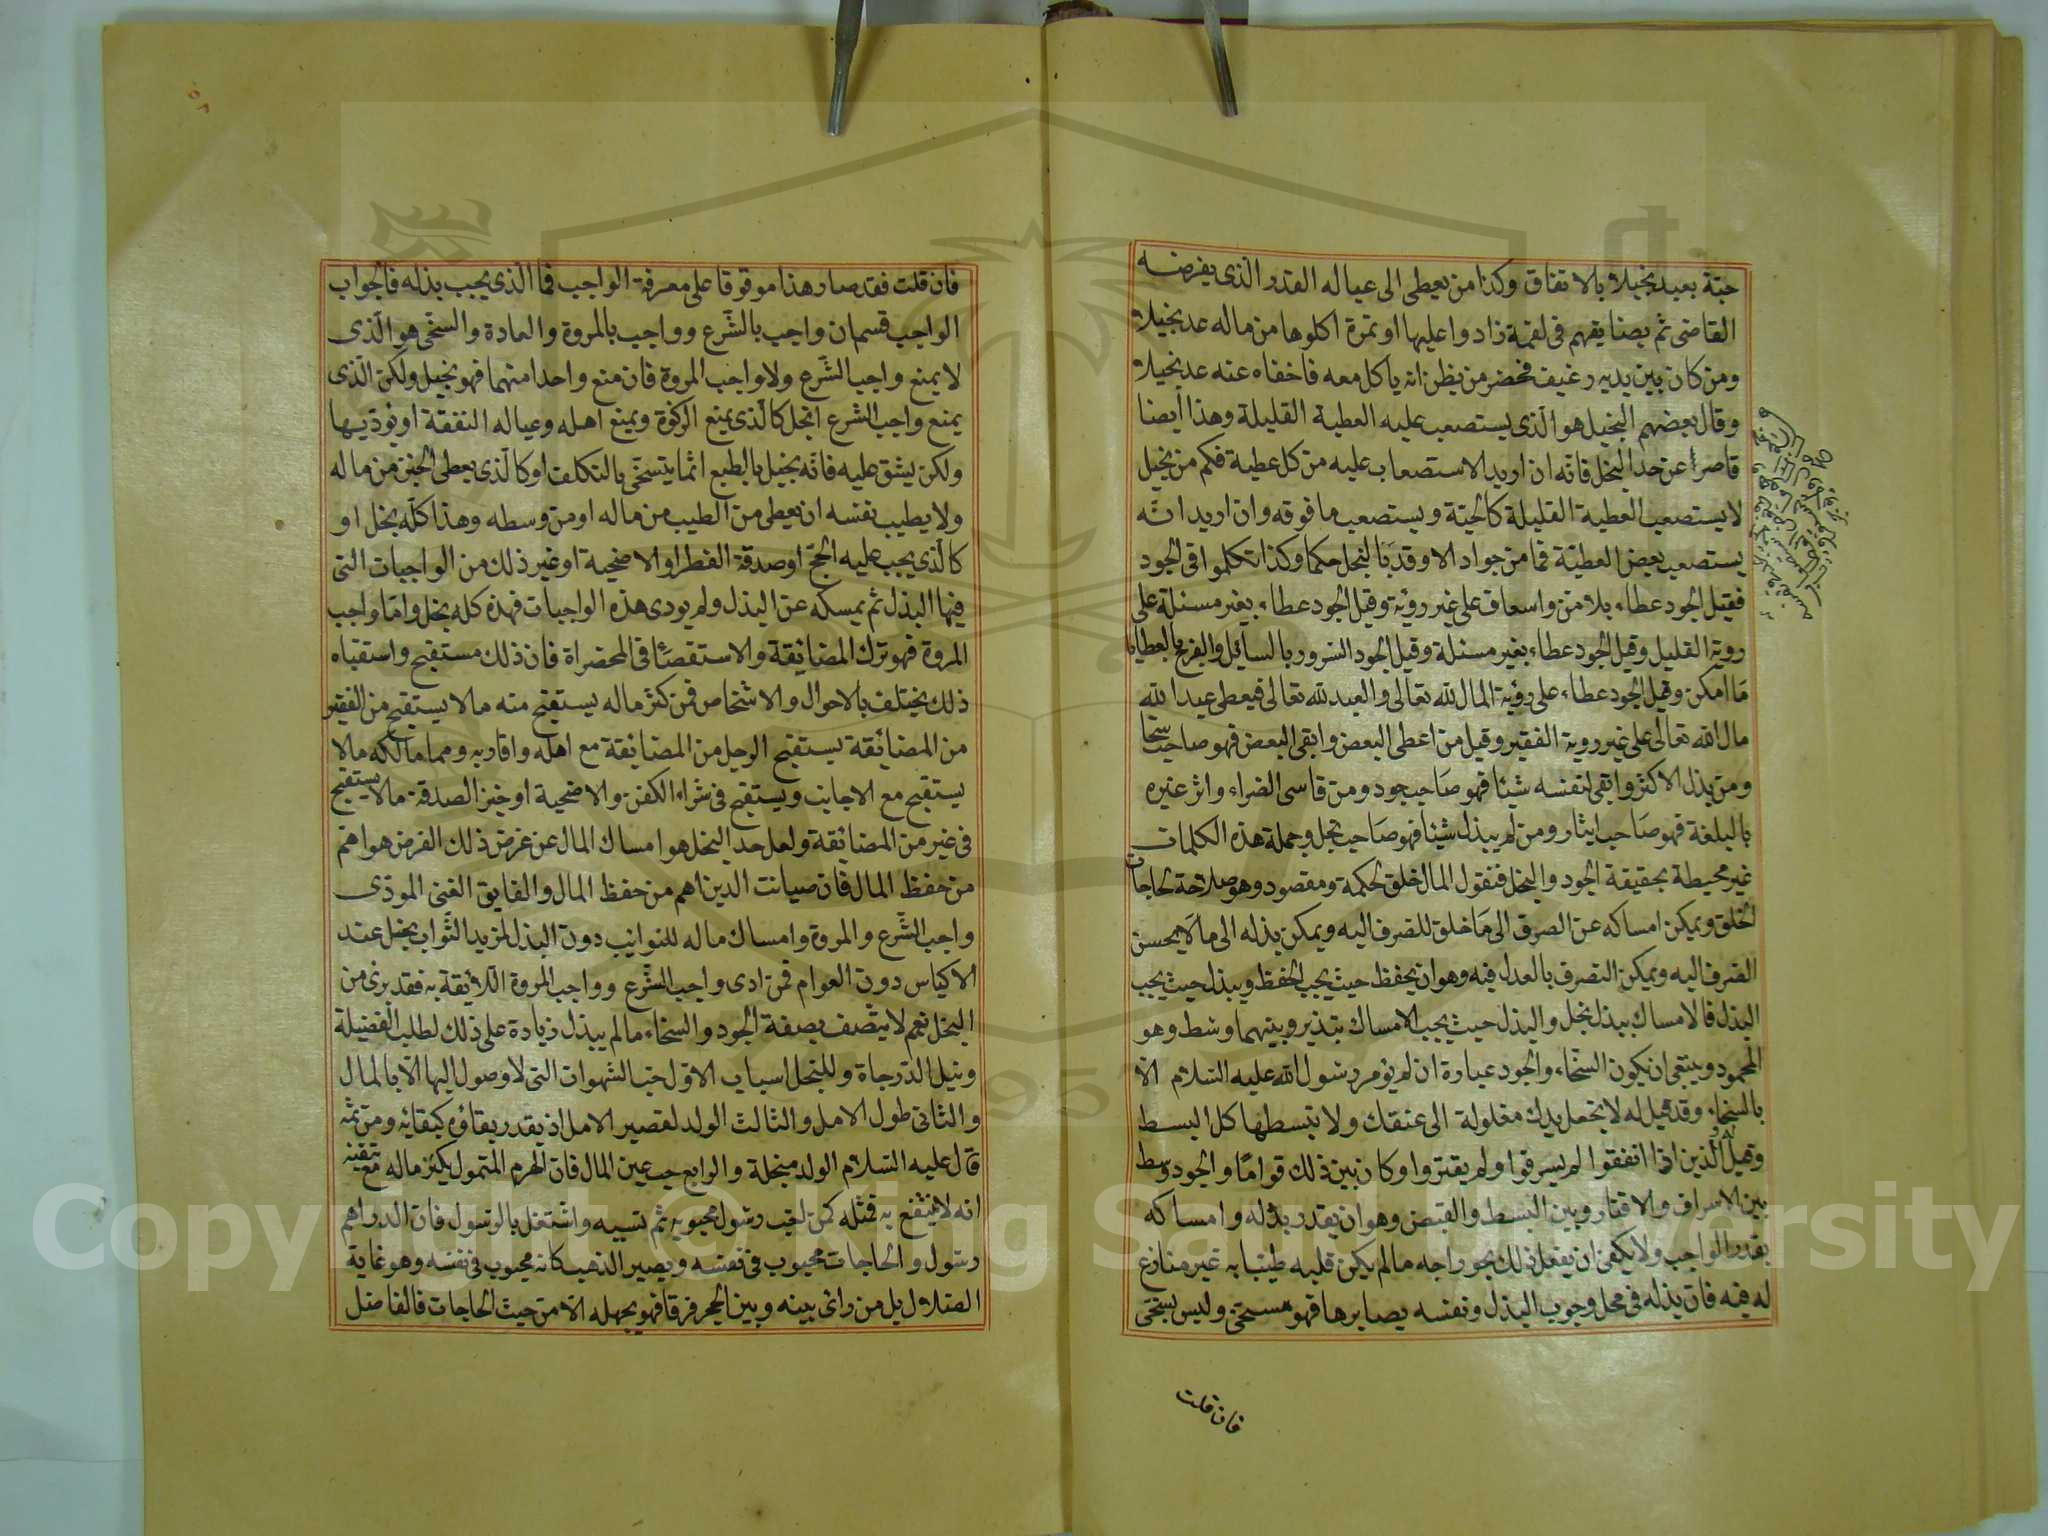 حبّة بعيد بخيلا بالاتفاق وكذا من يعطى الى عياله القدر الّذى يفرضه
القاضى ثم يضايقهم فى لقمة زادوا عليها او تمرة اكلوها من ماله عد بخيلا
ومن كان بين يديه رغيف فحضر من يظن انه ياكل معه فاخفاه عنه عد بخيلا
وقال بعضهم البخيل هو الّذى يستصعب عليه العطية القليلة وهذا أيضا
قاصرا عن حد البخل فانّه ان اريد الاستصعاب عليه من كل عطية فكم من بخيل
لا يستصعب العطية القليلة كالحبّة ويستصعب ما فوقه وان اريد انّه
يستصعب بعض العطيّة فما من جواد الا وقد بالبخل حكما وكذا تكلموا فى الجود
فقيل الجود عطاء بلا منّ واسعاف على غير روئة وقيل الجود عطاء بغير مسئلة على
روية القليل وقيل الجود عطاء بغير مسئلة وقيل الجود السرور بالسايل والفرح بالعطايا
ما امكن وقيل الجود عطاء على روئة المال لله تعالى والعبد لله تعالى فيعطى عبد الله
مال الله تعالى على غير روية الفقير وقيل من اعطى البعض وابقى البعض فهو صاحب سخا
ومن بذل الاكثر وابقى لنفسه شيئا فهو صاحب جود ومن قاسى الضراء واثر غيره
بالبلغة فهو صاحب ايثار ومن لم يبذل شيئا فهو صاحب بخل وجملة هذه الكلمات
غير محيطة بحقيقة الجود والبخل فنقول المال خلق لحكمة ومقصود وهو صلاحة لحاجات
الخلق ويمكن امساكه عن الصرف الى ما خلق للصرف اليه ويمكن بذله الى ما لا يحسن
الصرف اليه ويمكن التصرف بالعدل فيه وهو ان يحفظ حيث يجب الحفظ ويبذل حيث يجب
البذل فالامساك ببذل بخل والبذل حيث يجب الامساك بتذير وبينهما وسط وهو
المحمود وينبغى ان يكون السخاء والجود عبارة ان لم يؤمر رسول الله عليه السّلام الا
بالسخاء وقد قيل له لا تجعل يدك مغلولة الى عنقك ولا تبسطها كل البسط
وقيل له والّذين اذا انفقوا لم يسرفوا ولم يقتروا وكان بين ذلك قواما والجود وسط
بين الاسراف والاقتار وبين البسط والقبض وهو ان يقدر بذله وامساكه
بقدر الواجب ولا يكفى ان يفعل ذلك بجوراجه ما لم يكن قلبه طيبا به غير منازع
له فيه فان بذله فى محل وجوب البذل ونفسه يصابرها فهو مسخى وليس بسخى
فان قلت
فان قلت فقد صار هذا موقوفا على معرفة الواجب فما الّذى يجب بذله فالجواب
الواجب قسمان واجب بالشّرع وواجب بالمروة والعادة والسخى هو الّذى
لا يمنع واجب الشّرع ولا واجب المروة فان منع واحدا منهما فهو بخيل ولكن الّذى
يمنع واجب الشرع ابخل كالّذى يمنع الزكوة ويمنع اهله وعياله النفقة او يؤديها
ولكن يشق عليه فانّه بخيل بالطبع انّما يتسخّى بالتكلف او كالّذى يعطى الخبيث من ماله
ولا يطيب نفسه ان يعطى من الطيب من ماله او من وسطه وهذا كلّه بخل او
كالّذى يجب عليه الحجّ او صدقة الفطر او الاضحية او غير ذلك من الواجبات التى
فيها البذل ثم يمسكه عن البذل ولم يودى هذه الواجبات فهذه كله بخل وامّا واجب
المروة فهو ترك المضايقة والاستقصاء فى المحضراة فان ذلك مستقبح واستقباه
ذلك يختلف بالاحوال والاشخاص فمن كثر ماله يستقبح منه ما لا يستقبح من الفقير
من المضائقة يستقبح الرجل من المضائقة مع اهله واقاربه ومماملكه مالا
يستقبح مع الاجانب ويستقبح فى شراء الكفن والاضحية او خبز الصدقة مالا يستقبح
فى غير من المضائقة ولعل حد البخل هو امساك المال عن غرض ذلك الغرض هو اهم
من حفظ المال فان صيانت الدين اهم من حفظ المال والفايق الغنى الموذى
واجب الشّرع والمروة وامساك ماله للنوائب دون البذل لمزيد الثّواب بخل عند
الاكياس دون العوام فمن ادى واجب الشّرع وواجب المروة اللائقة به فقد برئ من
البخل نعم لا يتّصف بصفة الجود والسخاء ما لم يبذل زيادة على ذلك لطلب الفضيلة
ونيل الدّرجاة وللبخل اسباب الاول حب الشهوات التى لا وصول اليها الا بالمال
والثانى طول الامل والثالث الولد لقصير الامل اذ يقدر بقاؤه كبقائه ومن ثمّه
قال عليه السّلام الولد مبخلة والرابع حب عين المال فان الهرم المتمول يكنز ماله مع تيقنه
انه لا ينتفع به فمثله كمن احب رسول محبوبه ثم نسيه واشتغل بالرسول فان الدراهم
رسول والحاجات محبوب فى نفسه ويصير الذهب كانه محبوب فى نفسه وهو غاية
الضلال بل من راى بينه وبين الحجر فرقا فهو بجهله الا من حيث الحاجات فالفاضل